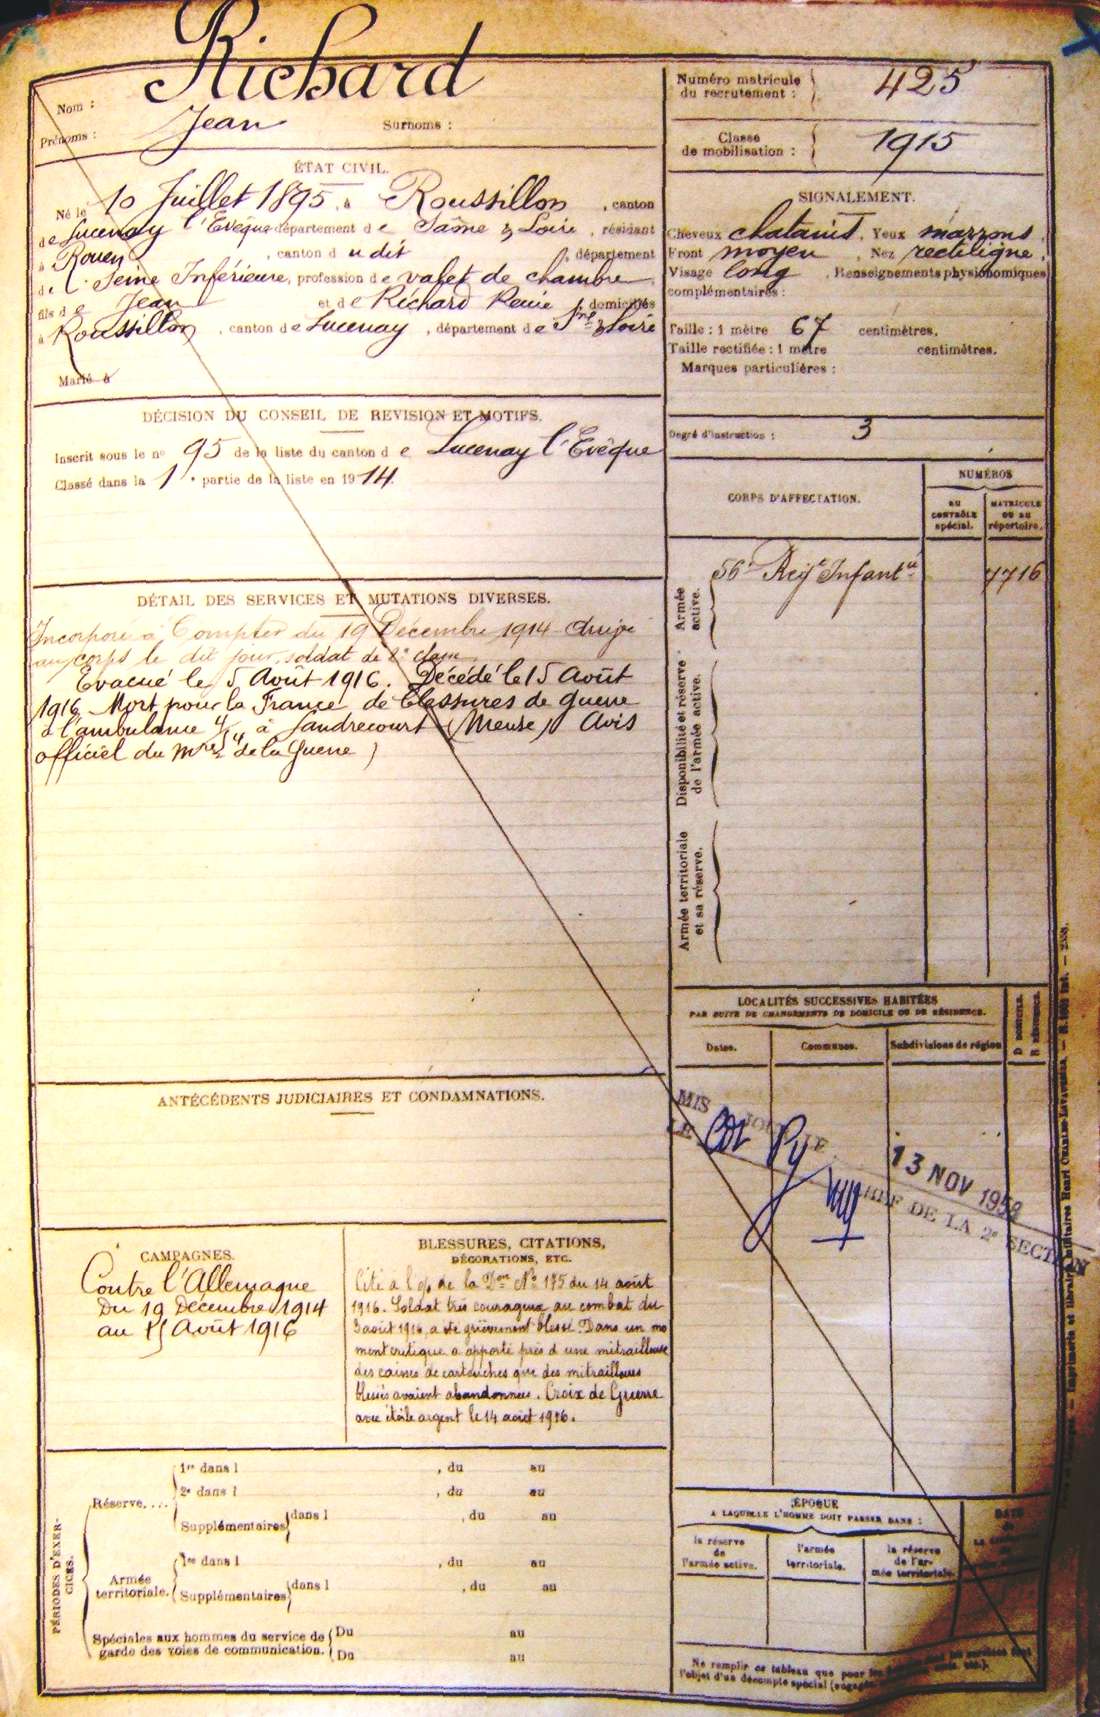 Nom : Richard
Prénoms : Jean Surnoms :
ÉTAT CIVIL.
Né le 10 Juillet 1895, à Roussillon, canton
de Lucenay l'Evêque département de Saône & Loire, résidant
à Rouen, canton du dit, département
de la Seine Inférieure, profession de valet de chambre,
fils de Jean et de Richard Reine, domiciliés
à Roussillon, canton de Lucenay, département de Sne & Loire
Marié à
DÉCISION DU CONSEIL DE REVISION ET MOTIFS.
Inscrit sous le n° 95 de la liste du canton de Lucenay l'Evêque
Classé dans la 1e partie de la liste en 1914.
DÉTAIL DES SERVICES ET MUTATIONS DIVERSES.
Incorporé à Compter du 19 Décembre 1914 dirigé
au corps le dit jour, soldat de 2e classe
Evacué le 5 Août 1916. Décédé le 15 Août
1916 Mort pour la France de blessures de guerre
à l'ambulance à Landrecourt (Meuse) Avis
officiel du Mre de la Guerre)
ANTÉCÉDENTS JUDICIAIRES ET CONDAMNATIONS.
CAMPAGNES.
Contre l'Allemagne
Du 19 Décembre 1914
au 15 Août 1916
BLESSURES, CITATIONS,
DÉCORATIONS, ETC.
Cité à l'o/. de la Don No 175 du 14 août
1916. Soldat très courageux au combat du
3 août 1916, a été grièvement blessé. Dans un mo
ment critique a apporté près d'une mitrailleuse
des caisses de cartouches que des mitrailleurs
blessés avaient abandonnées. Croix de Guerre
avec étoile argent le 14 août 1916.
PÉRIODES D'EXER-
CICES.
Réserve....
1re dans l , du au
2e dans l , du au
Supplémentaires dans l , du au
Armée
territoriale.
1re dans l , du au
Supplémentaires dans l , du au
Spéciales aux hommes du service de
garde des voies de communication.
Du au
Du au
Numéro matricule
du recrutement : 425
Classe
de mobilisation : 1915
SIGNALEMENT.
Cheveux chatains, Yeux marrons,
Front moyen, Nez rectiligne,
Visage long, Renseignements physionomiques
complémentaires :
Taille : 1 mètre 67 centimètres.
Taille rectifiée : 1 mètre centimètres.
Marques particulières :
Degré d'instruction : 3
CORPS D'AFFECTATION.
NUMÉROS
AU
CONTRÔLE
spécial.
MATRICULE
OU AU
répertoire.
Armée
active.
56e Regt Infantie 7716
Disponibilité et réserve
de l'armée active.
Armée territoriale
et sa réserve.
LOCALITÉS SUCCESSIVES HABITÉES
PAR SUITE DE CHANGEMENTS DE DOMICILE OU DE RÉSIDENCE.
Dates. Communes. Subdivisions de région
D. DOMICILE.
R. RÉSIDENCE.
MIS JOUR LE 13 NOV
LE CHEF DE LA 2e SECTION
ÉPOQUE
A LAQUELLE L'HOMME DOIT PASSER DANS :
la réserve
de
l'armée active.
l'armée
territoriale.
la réserve
de l'ar-
mée territoriale.
DATE
Ne remplir ce tableau que pour
l'objet d'un décompte spécial
Imprimerie et librairie militaires Henri CHARLES-LAVAUZELLE.